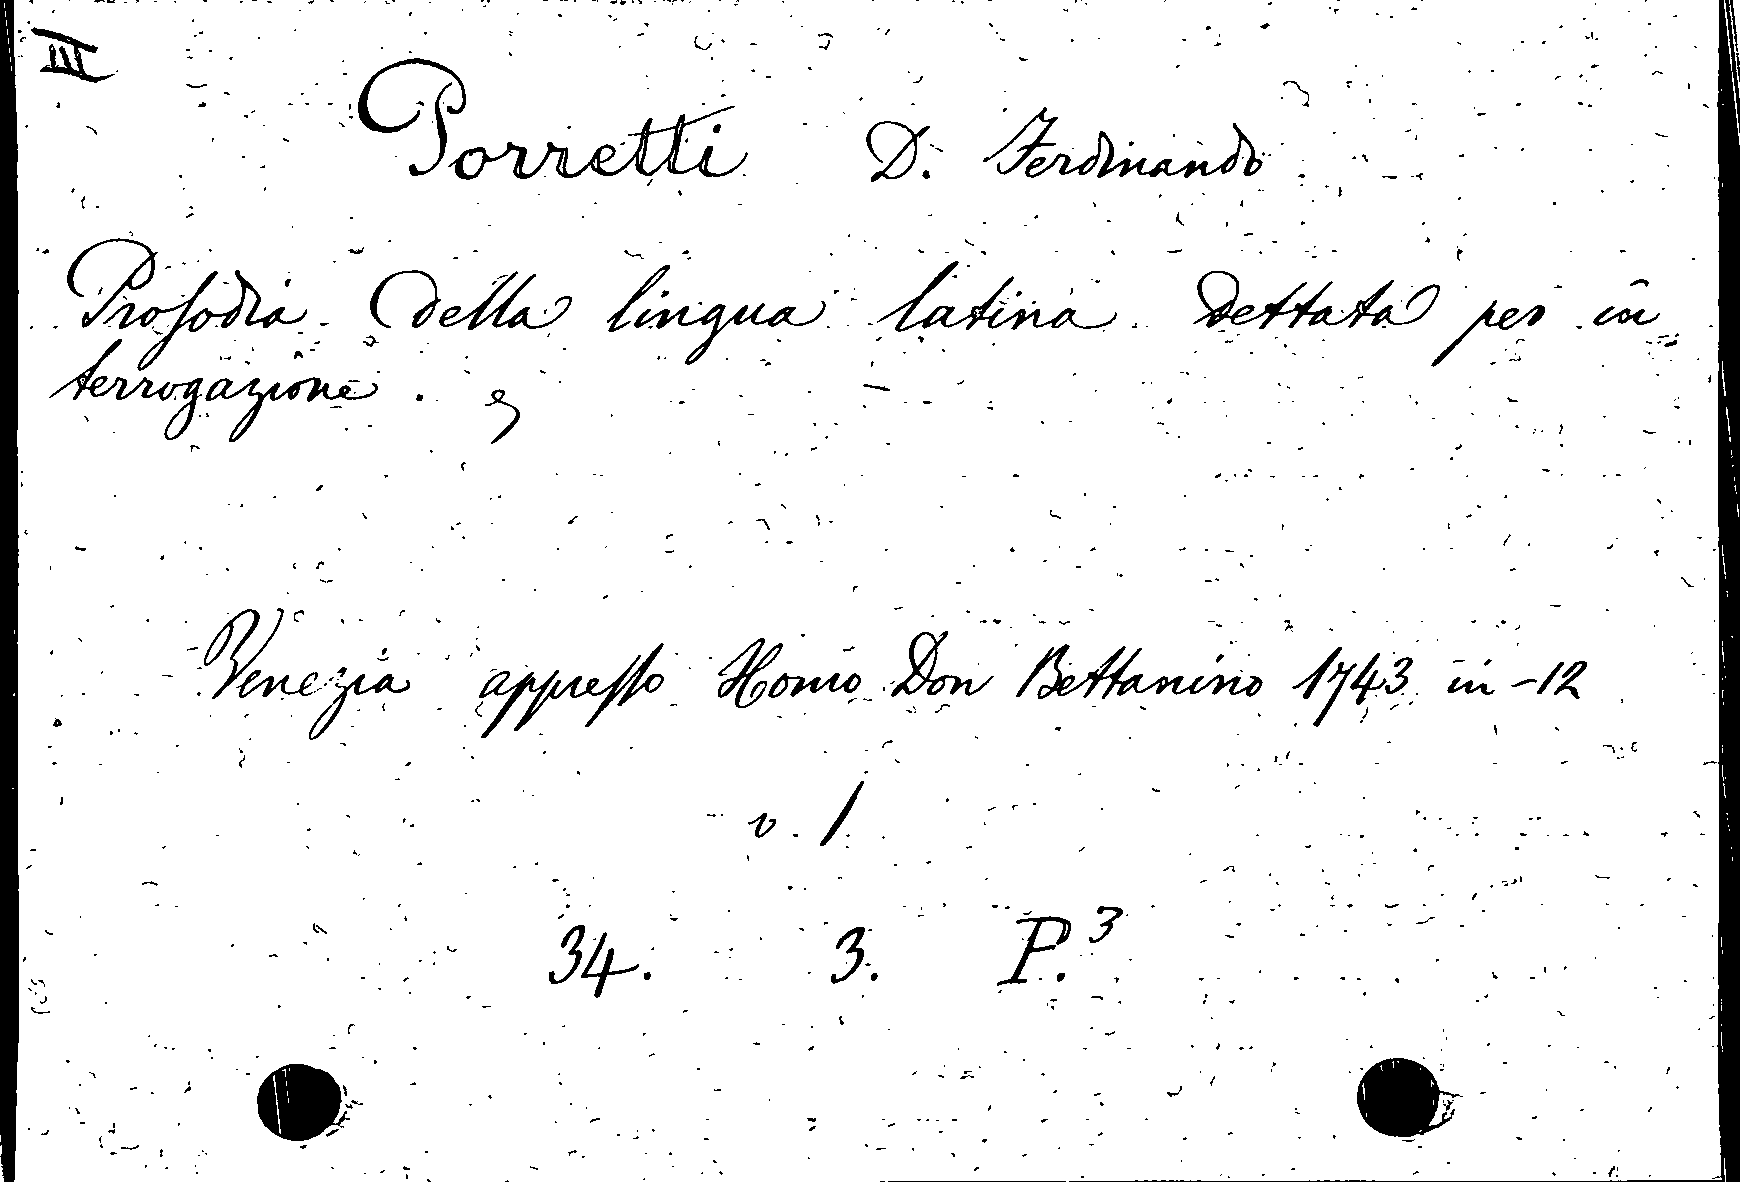 III
Porretti D. Ferdinando
Prosodia della lingua latina dettata per in
terrogazione.
Venezia appresso Homo Don Bettanino 1743 in-12
v. 1
34. 3. P.³